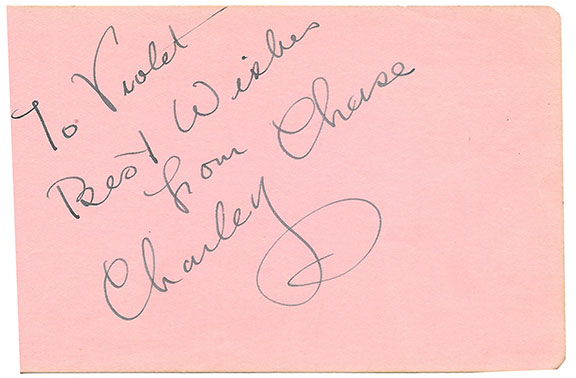 To Violet
Best Wishes
from
Charley Chase